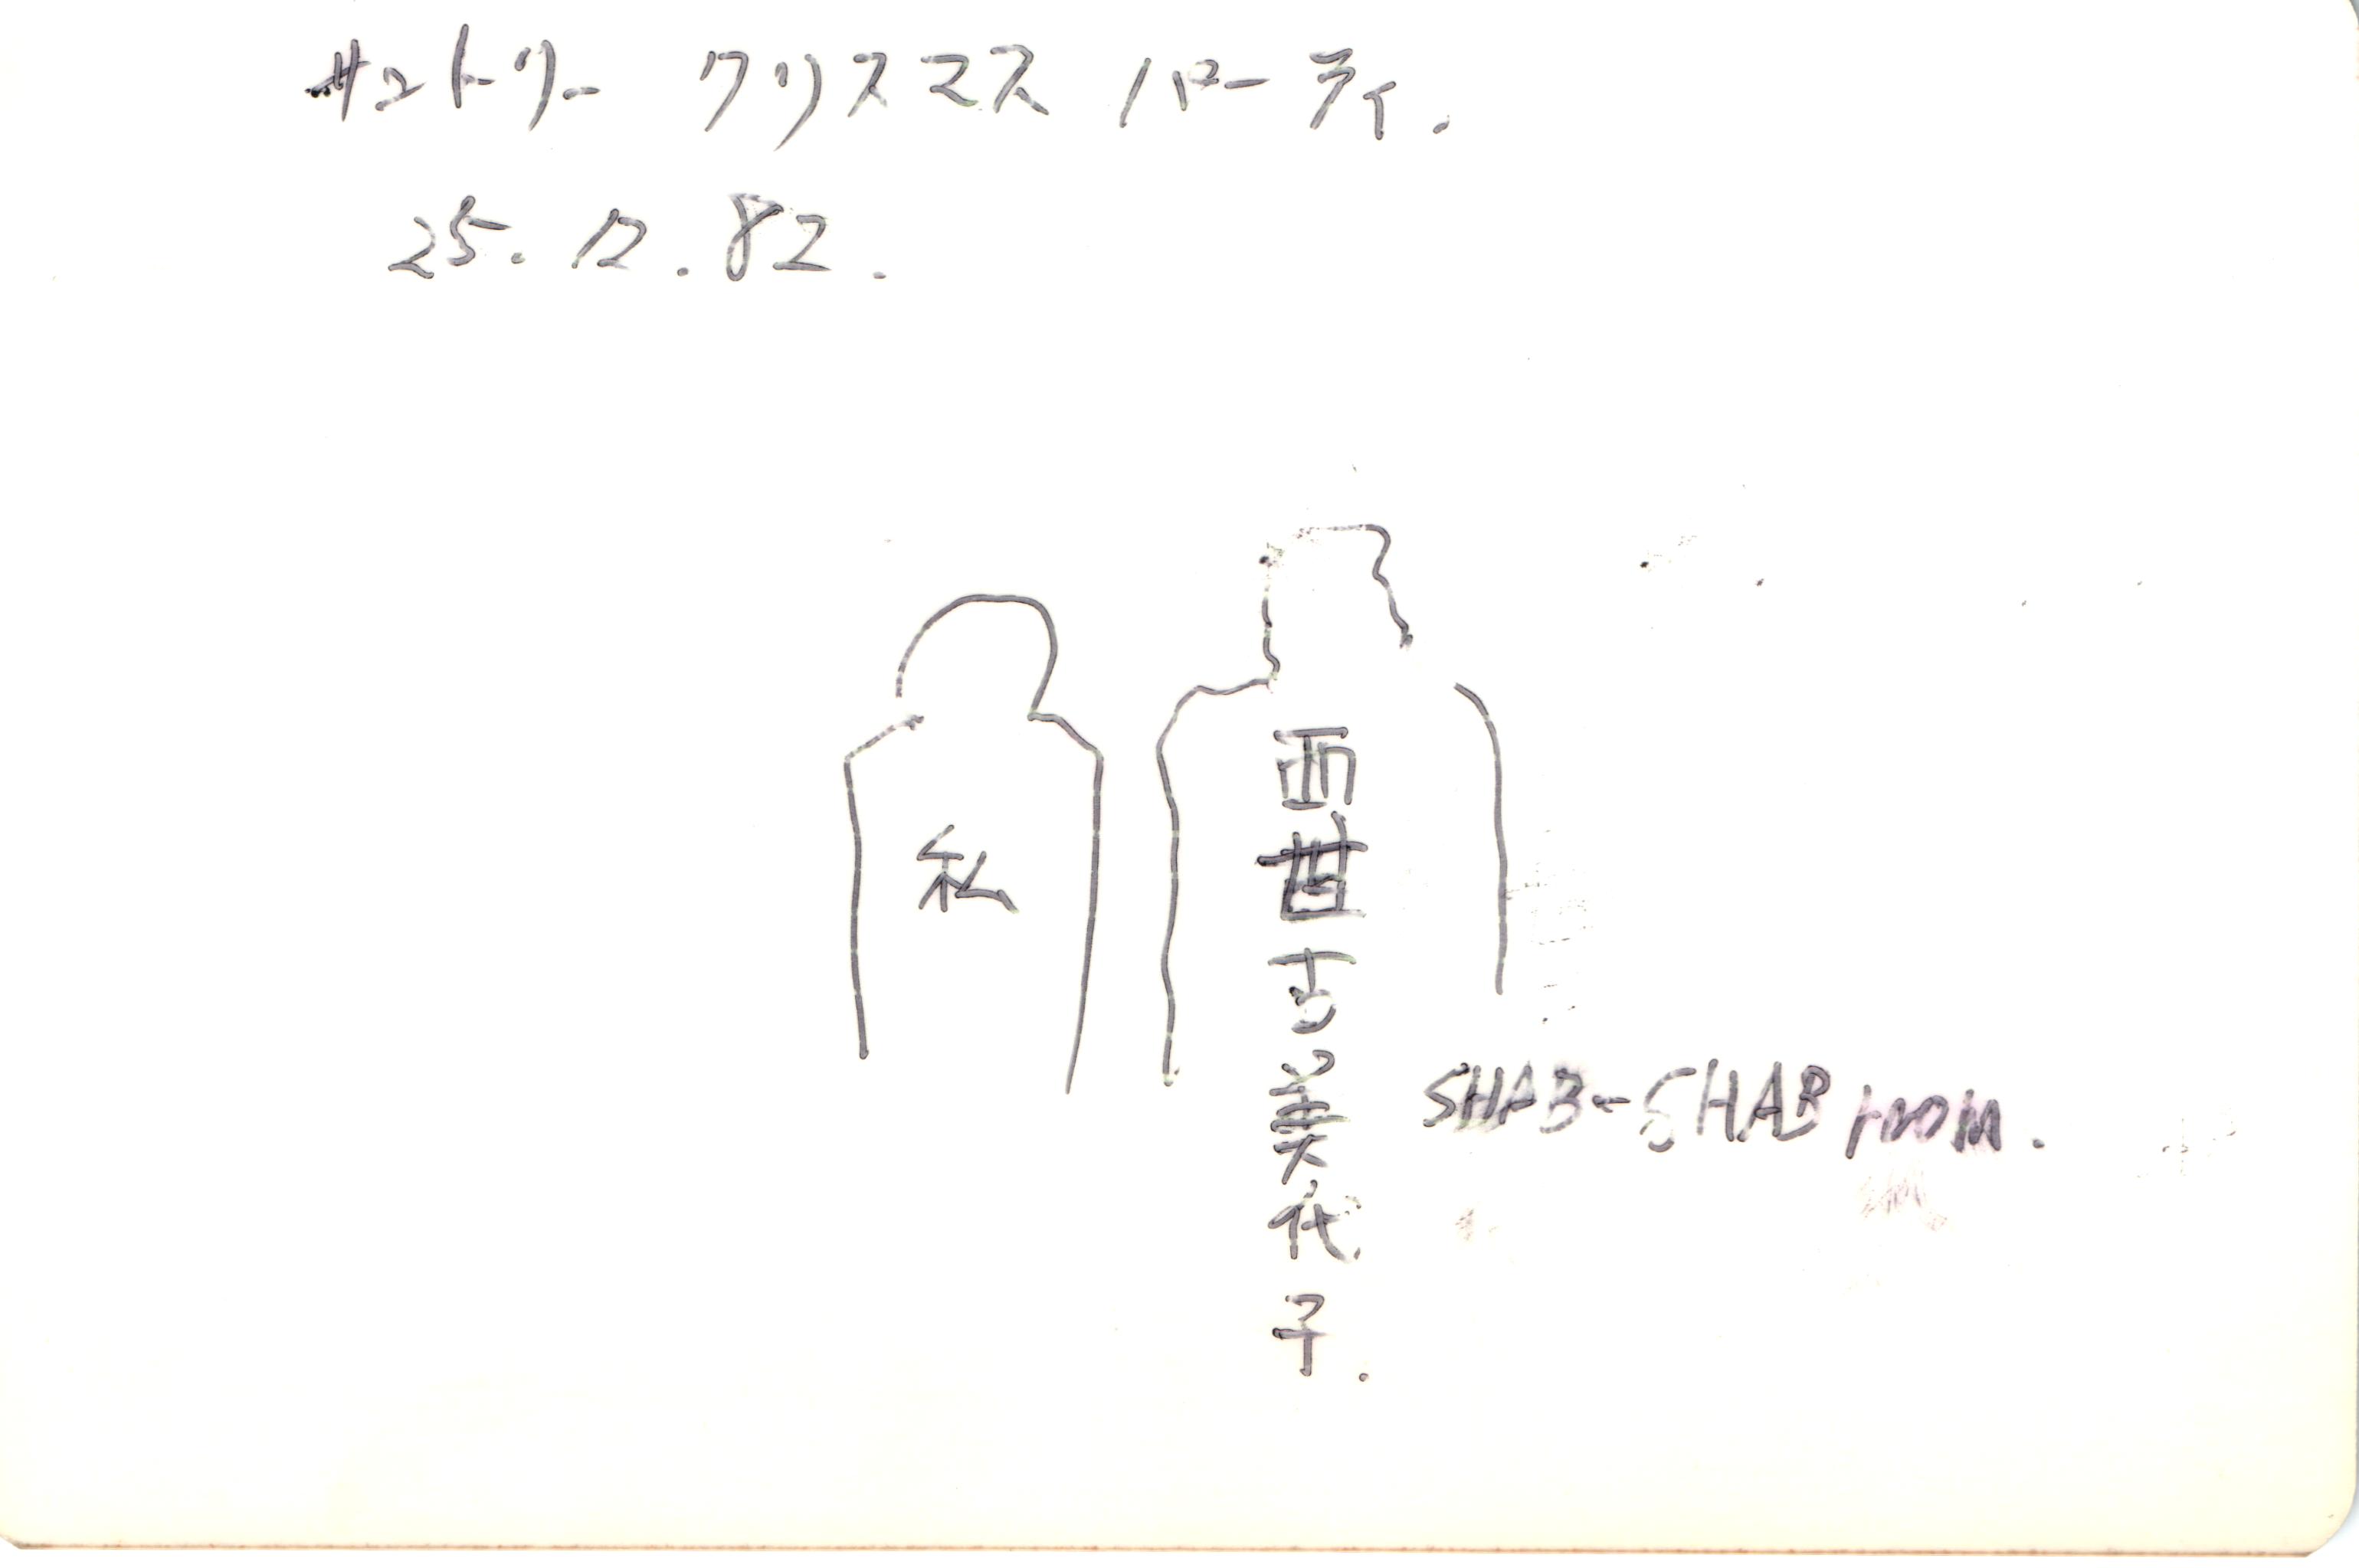 サントリー クリスマス パーティ.
25.12.82.
私
西世古美代子.
SHAB-SHAB room.